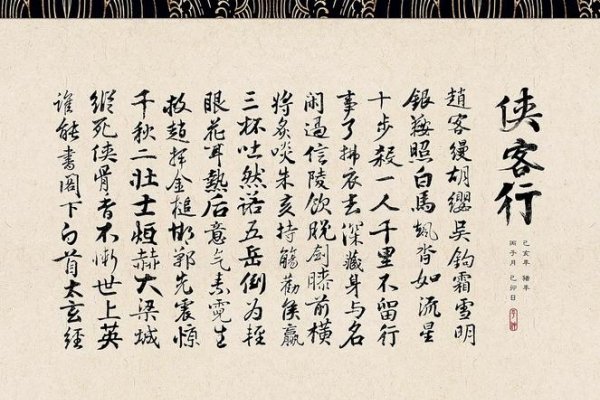 侠客行
己亥年 猪年
丙子月 己卯日
趙客缦胡缨吴鈎霜雪明
銀鞍照白馬飒沓如流星
十步殺一人千里不留行
事了拂衣去深藏身与名
闲過信陵飲脱劍膝前横
将炙啖朱亥持觴勸侯嬴
三杯吐然诺五岳倒为輕
眼花耳熱后意气素霓生
救趙挥金槌邯郸先震惊
千秋二壮士烜赫大梁城
縱死侠骨香不惭世上英
谁能書阁下白首太玄經